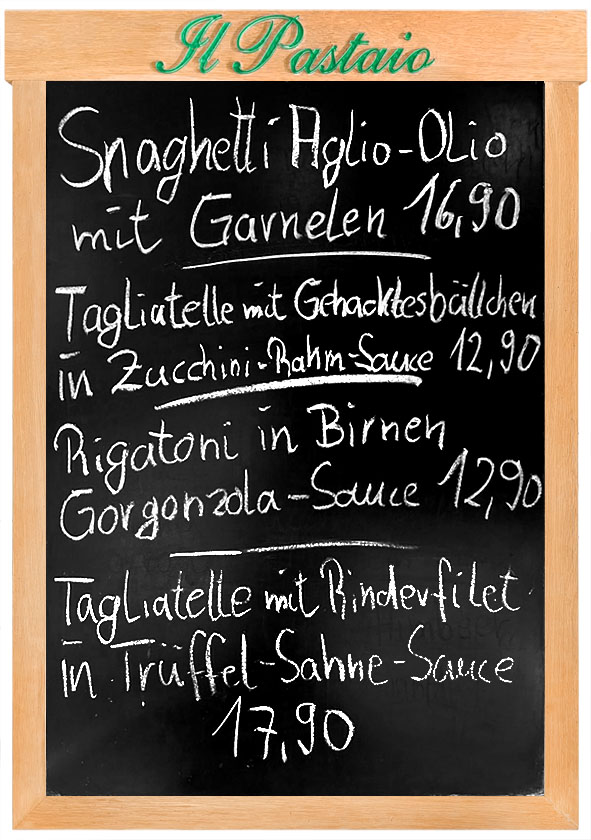 Il Pastaio
Spaghetti Aglio-Olio
mit Garnelen 16,90
Tagliatelle mit Gehacktesbällchen
in Zucchini-Rahm-Sauce 12,90
Rigatoni in Birnen
Gorgonzola-Sauce 12,90
Tagliatelle mit Rinderfilet
in Trüffel-Sahne-Sauce
17,90